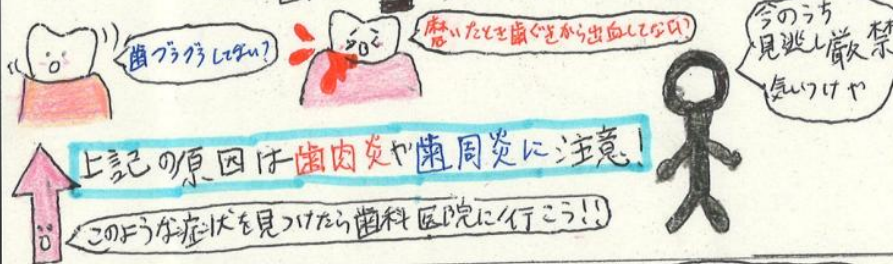 歯グラグラしてない?
磨いたとき歯ぐきから出血してない?
今のうち
見逃し厳禁
気いつけや
上記の原因は歯肉炎や歯周炎に注意!
このような症状を見つけたら歯科医院に行こう!!